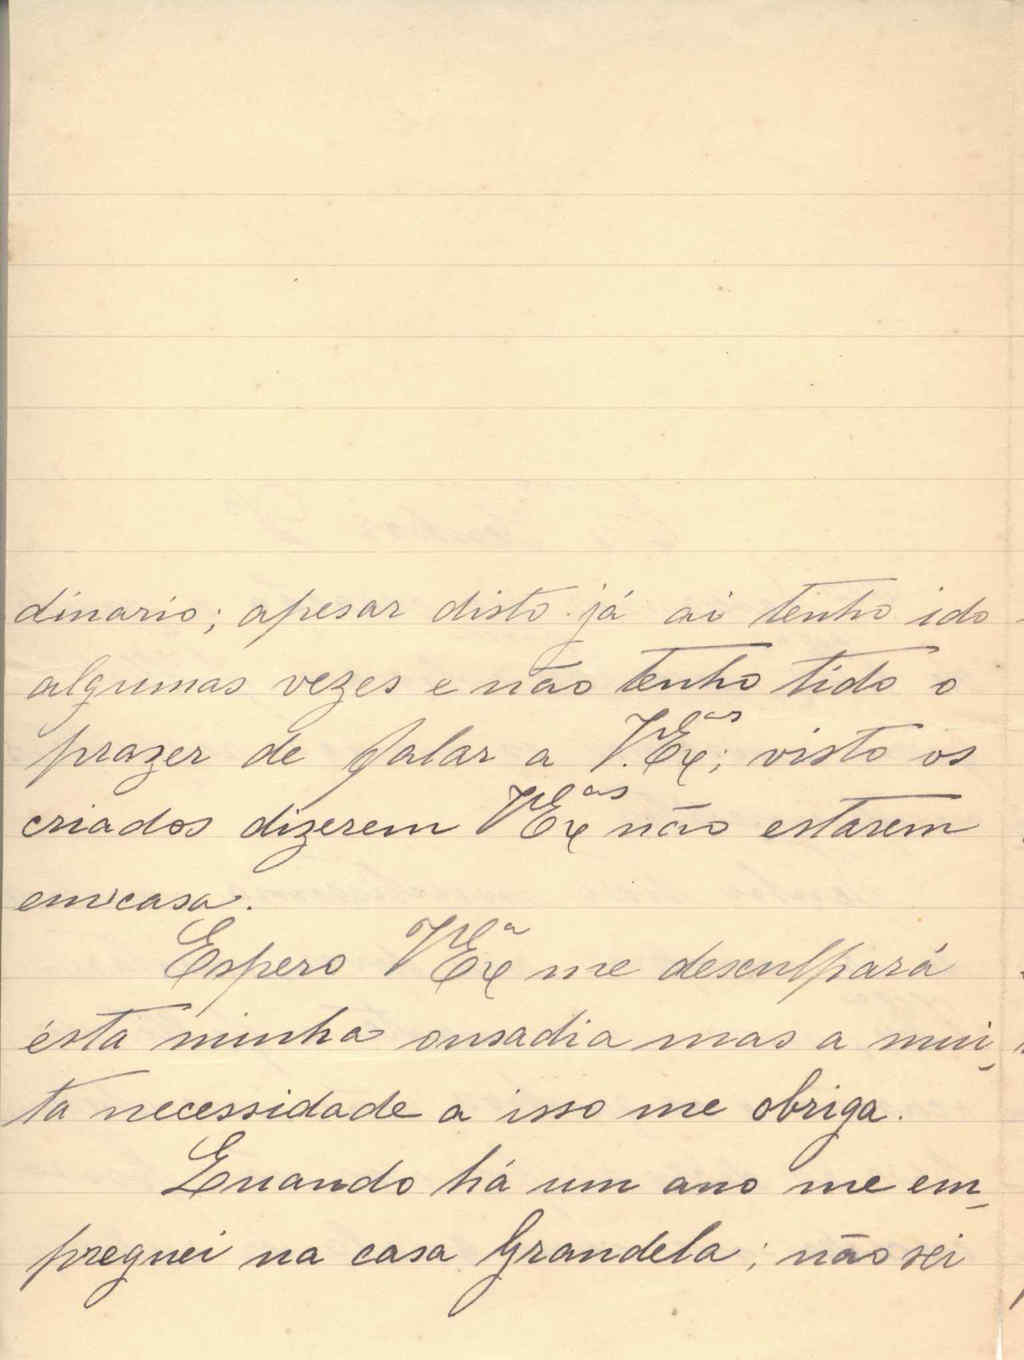 dinario; apesar disto já ai tenho ido
algumas vezes e não tenho tido o
prazer de falar a V. Ex.ᵃˢ; visto os
criados dizerem V Ex.ᵃˢ não estarem
em casa.
Espero V Ex.ᵃ me desculpará
ésta minha ousadia mas a mui-
ta necessidade a isso me obriga.
Quando há um ano me em-
preguei na casa Grandela; não sei